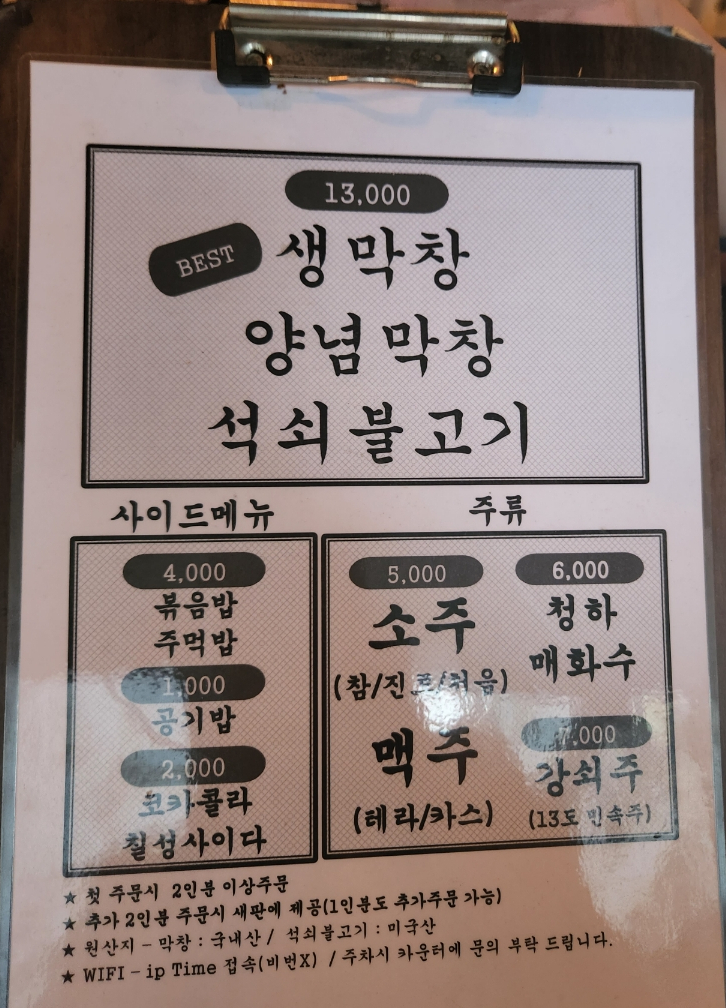 13,000
BEST 생막창
양념막창
석쇠불고기
사이드메뉴
4,000
볶음밥
주먹밥
1,000
공기밥
2,000
코카콜라
칠성사이다
주류
5,000
소주
(참/진로/처음)
맥주
(테라/카스)
6,000
청하
매화수
7,000
강쇠주
(13도 민속주)
★ 첫 주문시 2인분 이상주문
★ 추가 2인분 주문시 새판에 제공(1인분도 추가주문 가능)
★ 원산지 - 막창 : 국내산 / 석쇠불고기 : 미국산
★ WIFI - ip Time 접속(비번X) / 주차시 카운터에 문의 부탁 드립니다.